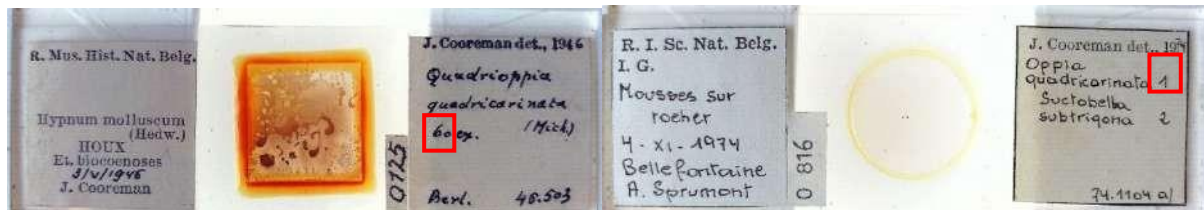 R. Mus. Hist. Nat. Belg.
Hypnum molluscum
(Hedw.)
HOUX
Et. biocoenoses
3/V/1946
J. Cooreman
0125
J. Cooreman det., 1946
Quadrioppia
quadricarinata
60 ex. (Mich)
Berl. 46.503
R. I. Sc. Nat. Belg.
I. G.
Mousses sur
rocher
4-XI-1974
Bellefontaine
A. Sprumont
0 816
J. Cooreman det., 1974
Oppia
quadricarinata 1
Suctobelba
subtrigona 2
74.1104 a/